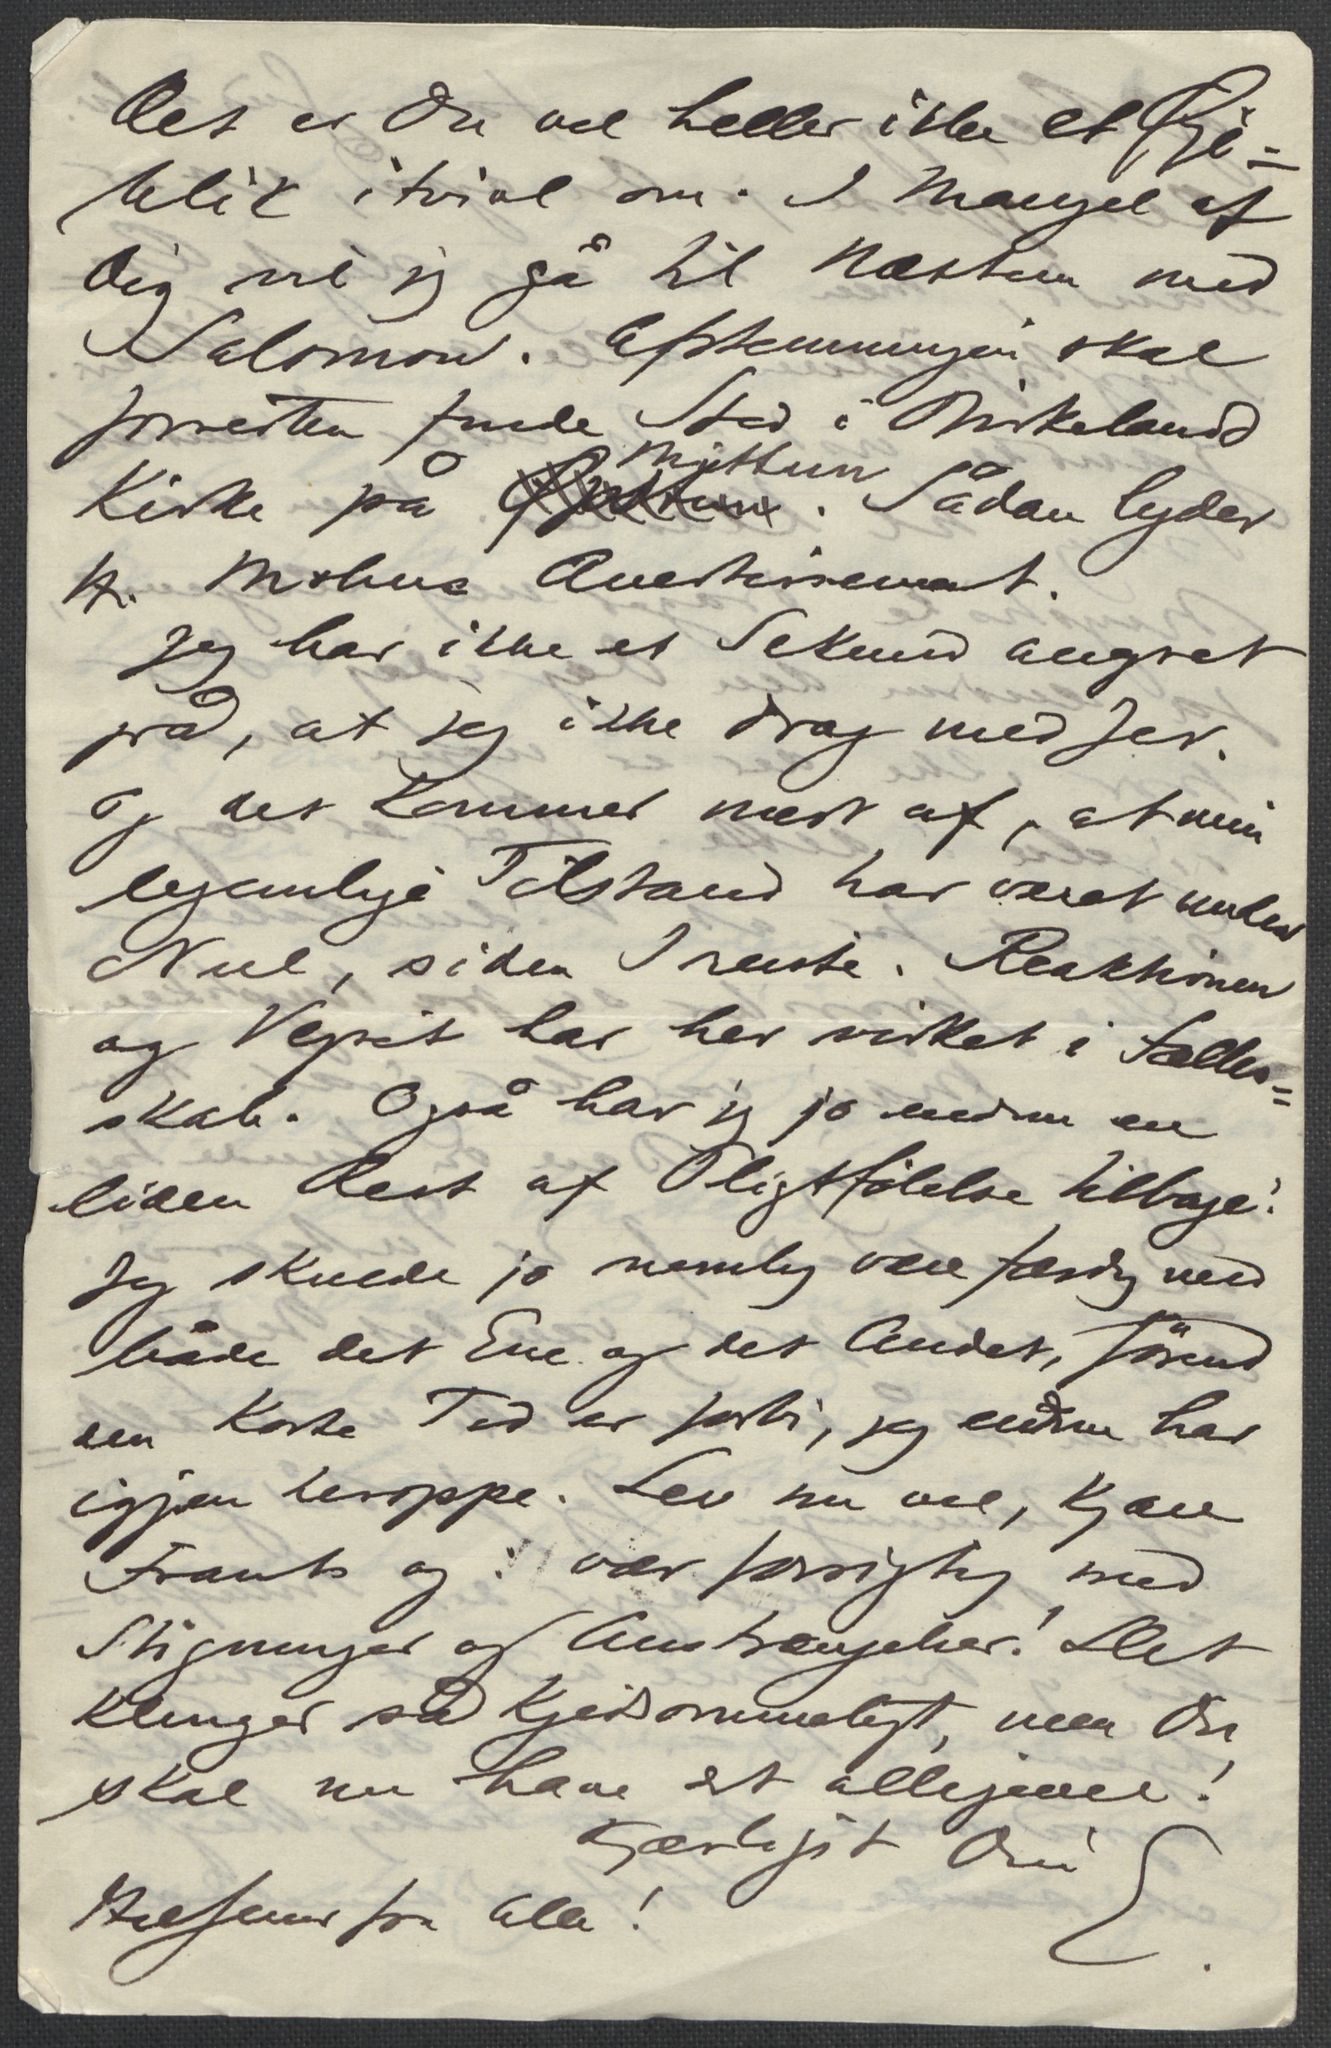 Det er Du vel heller ikke et Øje=
blik i tvivl om. I Mangel af
Dig må jeg gå til Næsten med
Salomon. Afstemningen skal
forresten finde Sted i Birkelands
Kirke på Mjeltun. Sådan lyder
Hr. Mohns Avertissement.
Jeg har ikke et Sekund angret
på, at jeg ikke drog med Jer.
Og det kommer mest af, at min
legemlige Tilstand har været under
Nul, siden I reiste. Reaktionen
og Vejret har her virket i Fælles=
skab. Også har jeg jo endnu en
liden Rest af Pligtfølelse tilbage:
Jeg skulde jo nemlig være færdig med
både det Ene og det Andet, førend
den korte Tid er forbi, jeg endnu har
igjen heroppe. Lev nu vel, kjære
Frants og: vær forsigtig med
Stigninger og Anstrængelser! Det
klinger så kjedsommeligt, men Du
skal nu have det alligevel!
Kjærligst Din
E.
Hilsener fra Alle!